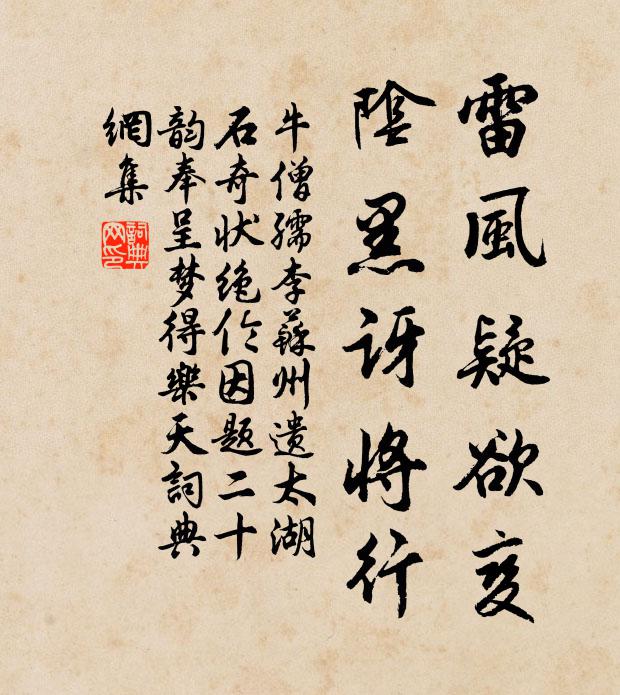 雷風疑欲变
陰黑訝將行
牛僧孺李蘇州遺太湖
石奇状绝伦因题二十
韵奉呈梦得樂天詞典
網集
詞典網印